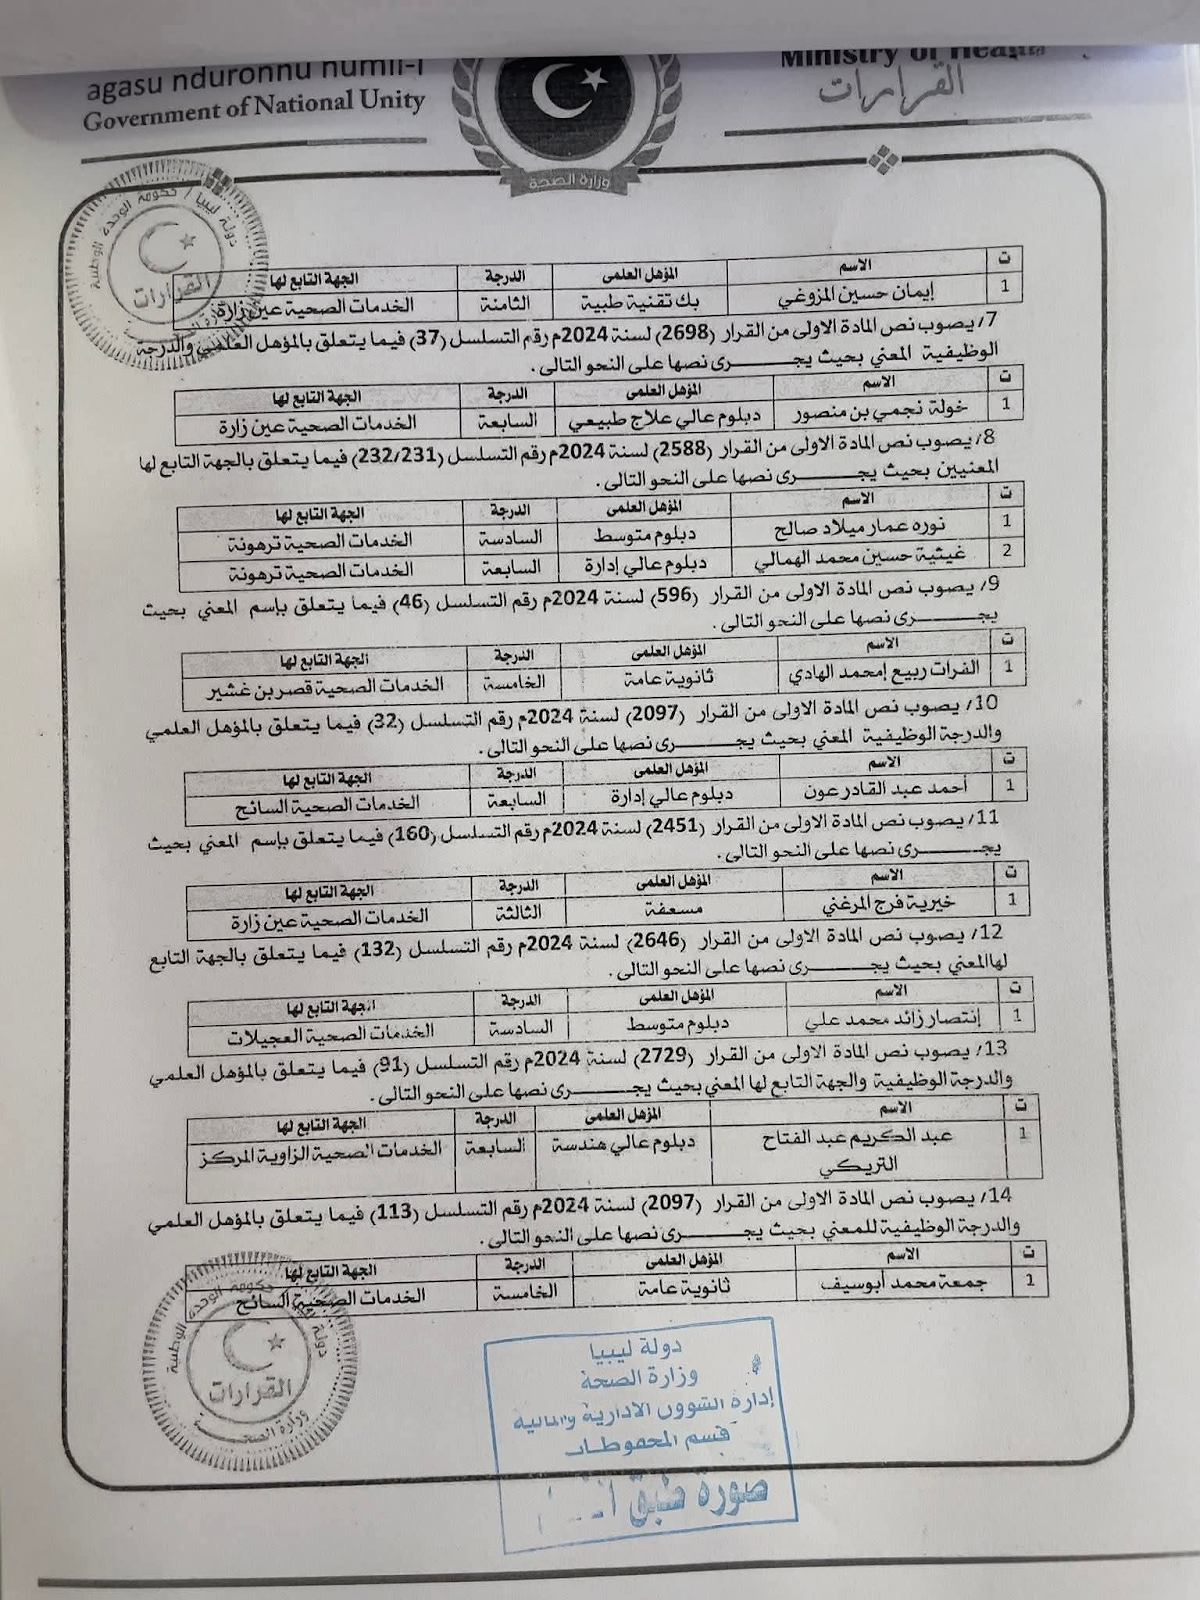 agasu nduronnu numil-i
Government of National Unity
Ministry of Health
القرارات
وزارة الصحة
دولة ليبيا / حكومة الوحدة الوطنية
القرارات
ت الاسم المؤهل العلمى الدرجة الجهة التابع لها
1 إيمان حسين المزوغي بك تقنية طبية الثامنة الخدمات الصحية عين زارة
7/ يصوب نص المادة الاولى من القرار (2698) لسنة 2024م رقم التسلسل (37) فيما يتعلق بالمؤهل العلمي والدرجة
الوظيفية المعني بحيث يجــــــرى نصها على النحو التالى .
ت الاسم المؤهل العلمى الدرجة الجهة التابع لها
1 خولة نجمي بن منصور دبلوم عالي علاج طبيعي السابعة الخدمات الصحية عين زارة
8/ يصوب نص المادة الاولى من القرار (2588) لسنة 2024م رقم التسلسل (232/231) فيما يتعلق بالجهة التابع لها
المعنيين بحيث يجــــــرى نصها على النحو التالى .
ت الاسم المؤهل العلمى الدرجة الجهة التابع لها
1 نوره عمار ميلاد صالح دبلوم متوسط السادسة الخدمات الصحية ترهونة
2 غيثية حسين محمد الهمالي دبلوم عالي إدارة السابعة الخدمات الصحية ترهونة
9/ يصوب نص المادة الاولى من القرار (596) لسنة 2024م رقم التسلسل (46) فيما يتعلق بإسم المعني بحيث
يجــــــرى نصها على النحو التالى .
ت الاسم المؤهل العلمى الدرجة الجهة التابع لها
1 الفرات ربيع إمحمد الهادي ثانوية عامة الخامسة الخدمات الصحية قصر بن غشير
10/ يصوب نص المادة الاولى من القرار (2097) لسنة 2024م رقم التسلسل (32) فيما يتعلق بالمؤهل العلمي
والدرجة الوظيفية المعني بحيث يجــــــرى نصها على النحو التالى .
ت الاسم المؤهل العلمى الدرجة الجهة التابع لها
1 أحمد عبد القادر عون دبلوم عالي إدارة السابعة الخدمات الصحية السائح
11/ يصوب نص المادة الاولى من القرار (2451) لسنة 2024م رقم التسلسل (160) فيما يتعلق بإسم المعني بحيث
يجــــــرى نصها على النحو التالى .
ت الاسم المؤهل العلمى الدرجة الجهة التابع لها
1 خيرية فرج المرغني مسعفة الثالثة الخدمات الصحية عين زارة
12/ يصوب نص المادة الاولى من القرار (2646) لسنة 2024م رقم التسلسل (132) فيما يتعلق بالجهة التابع
لهاالمعني بحيث يجــــــرى نصها على النحو التالى .
ت الاسم المؤهل العلمى الدرجة الجهة التابع لها
1 إنتصار زائد محمد علي دبلوم متوسط السادسة الخدمات الصحية العجيلات
13/ يصوب نص المادة الاولى من القرار (2729) لسنة 2024م رقم التسلسل (91) فيما يتعلق بالمؤهل العلمي
والدرجة الوظيفية والجهة التابع لها المعني بحيث يجــــــرى نصها على النحو التالى .
ت الاسم المؤهل العلمى الدرجة الجهة التابع لها
1 عبد الكريم عبد الفتاح دبلوم عالي هندسة السابعة الخدمات الصحية الزاوية المركز
التريكي
14/ يصوب نص المادة الاولى من القرار (2097) لسنة 2024م رقم التسلسل (113) فيما يتعلق بالمؤهل العلمي
والدرجة الوظيفية للمعني بحيث يجــــــرى نصها على النحو التالى .
ت الاسم المؤهل العلمى الدرجة الجهة التابع لها
1 جمعة محمد أبوسيف ثانوية عامة الخامسة الخدمات الصحية السائح
دولة ليبيا / حكومة الوحدة الوطنية
القرارات
وزارة الصحة
دولة ليبيا
وزارة الصحة
إدارة الشؤون الادارية والمالية
قسم المحفوظات
صورة طبق